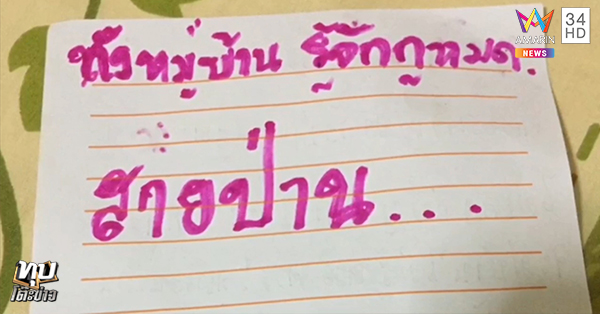 ทั้งหมู่บ้าน รู้จักกูหมด.
สายป่าน...
AMARIN
NEWS
34
HD
ทุบ
โต๊ะข่าว